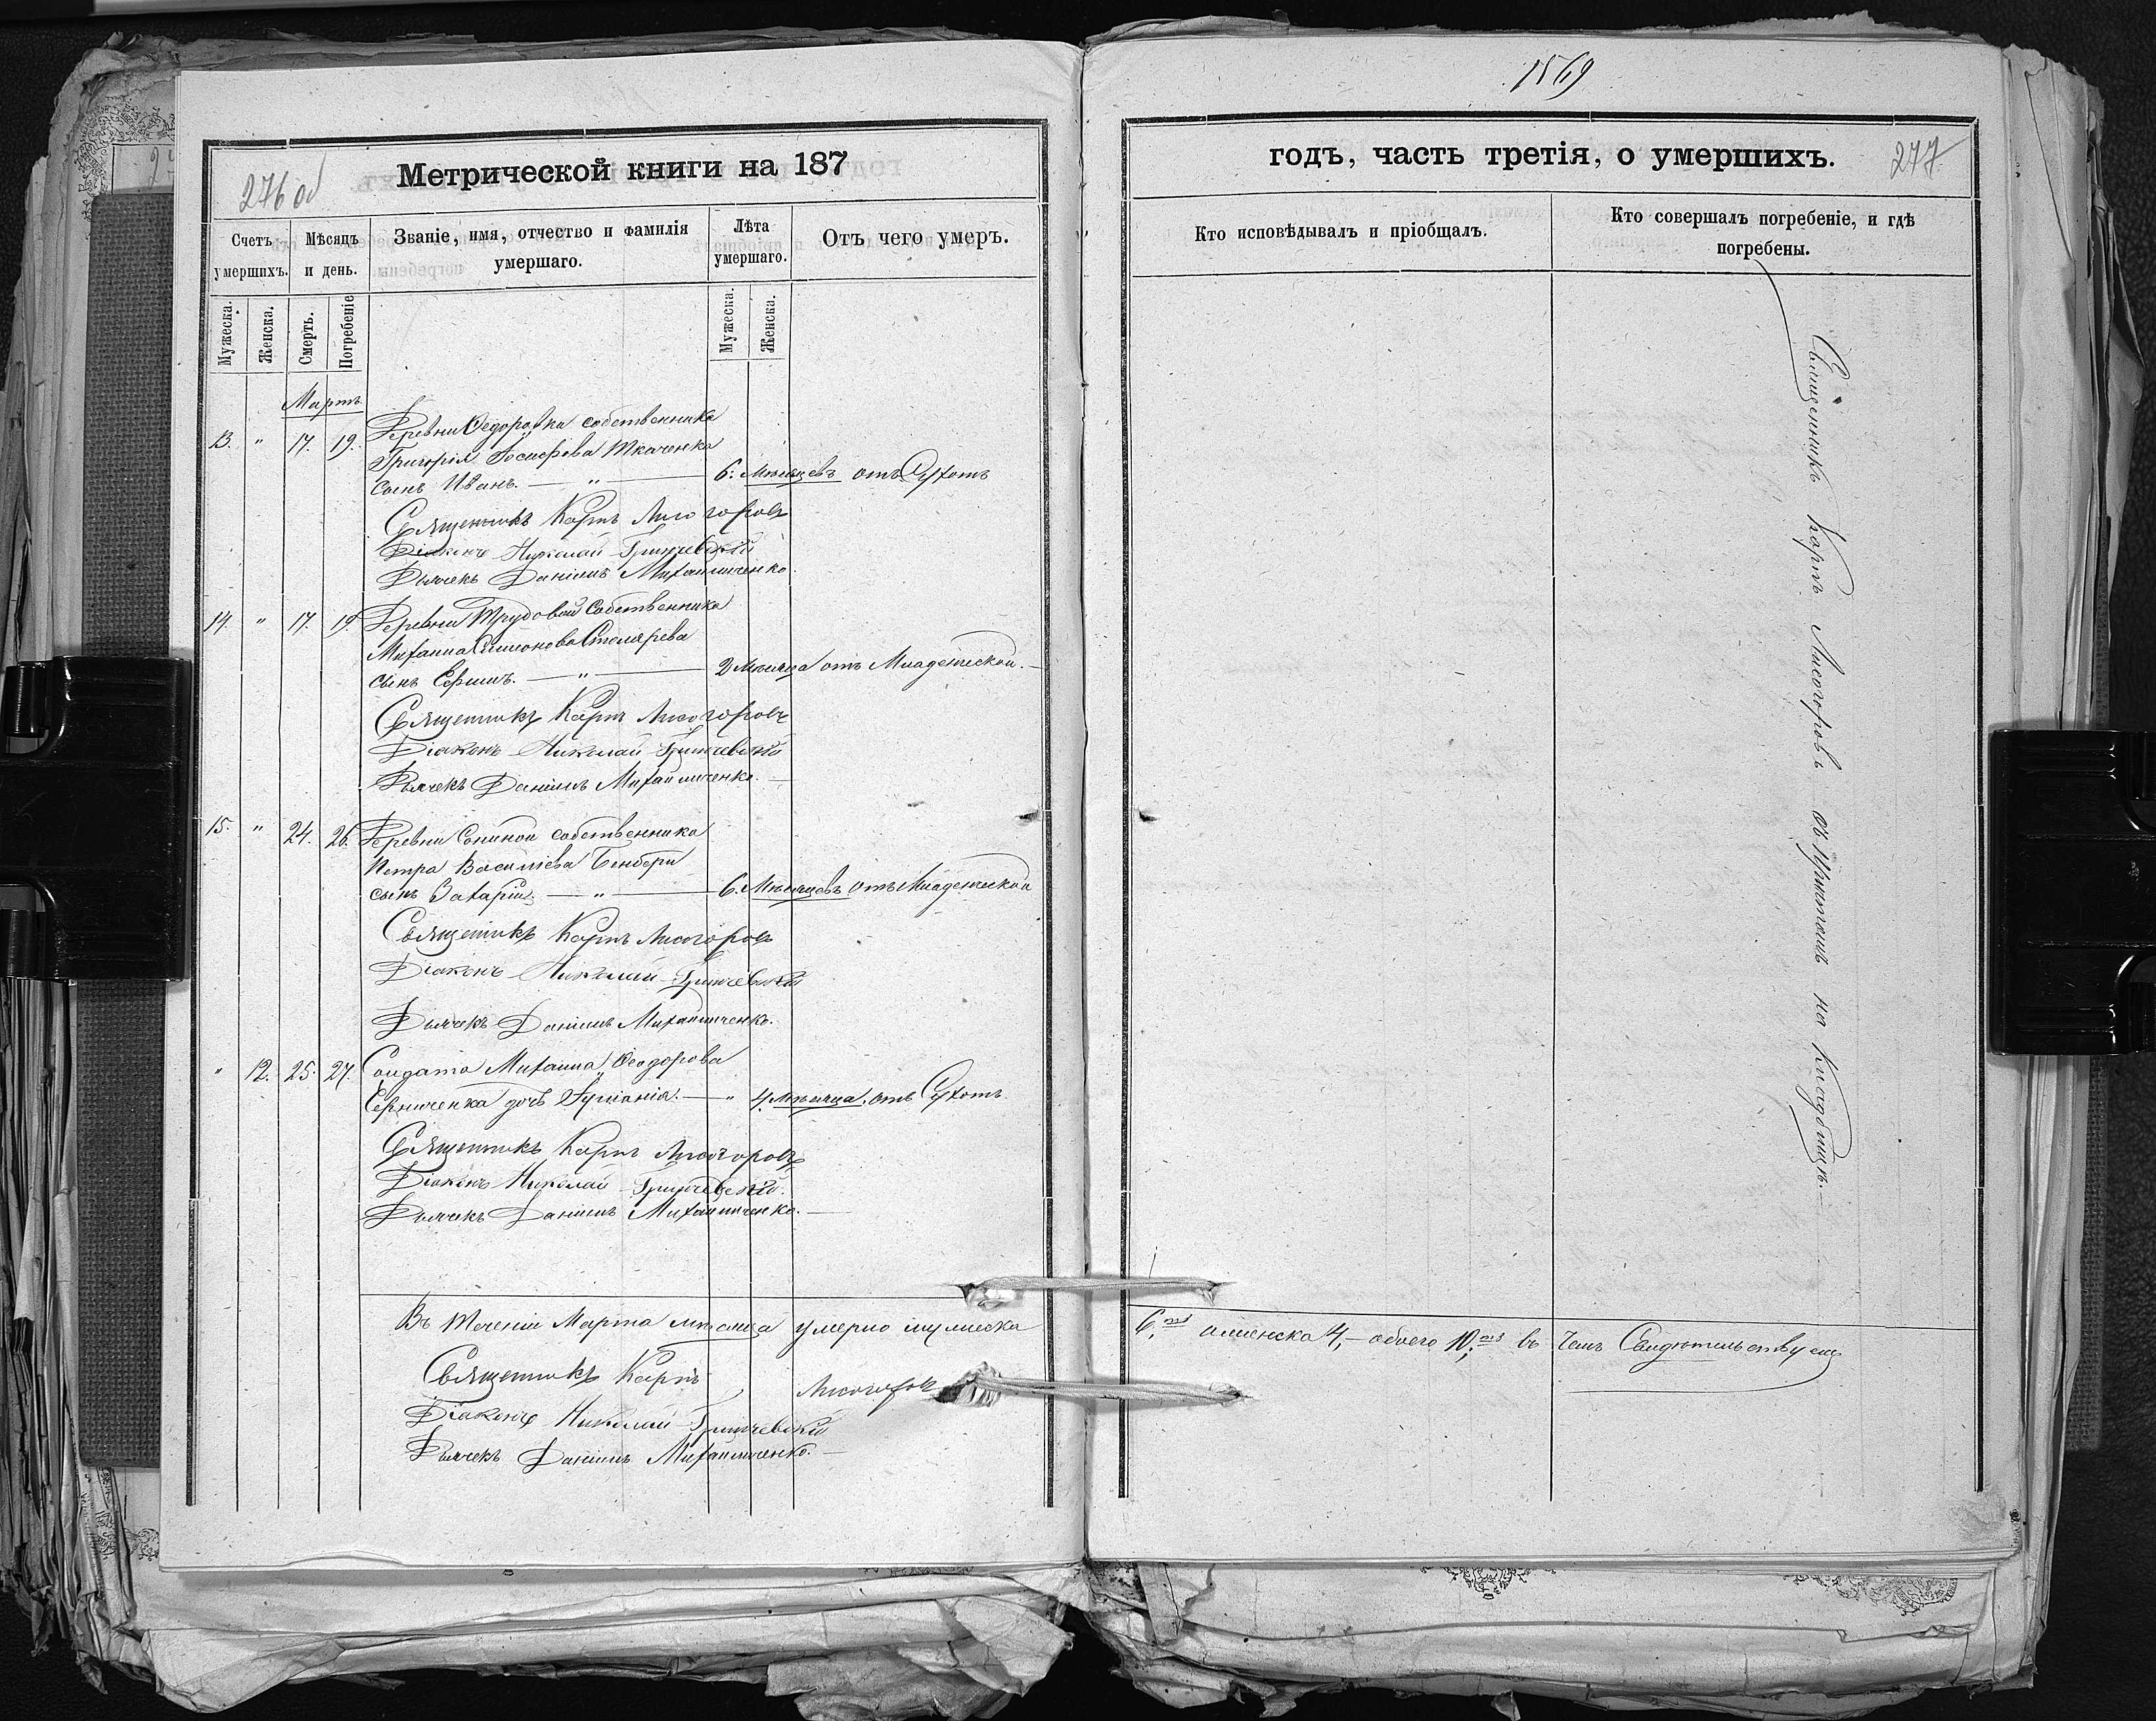 1569
276 об
Метрической книги на 187
годъ, часть третія, о умершихъ.
277
Счетъ умершихъ.
Мѣсяцъ и день.
Званіе, имя, отчество и фамилія умершаго.
Лѣта умершаго.
Отъ чего умеръ.
Кто исповѣдывалъ и пріобщалъ.
Кто совершалъ погребеніе, и гдѣ погребены.
Мужеска.
Женска.
Смерть.
Погребеніе
Мужеска.
Женска.
Мартъ
Деревни Ѳедоровка собственника
13. " 17. 19. Григорія Іосифова Ткаченка
сынъ Иванъ. — " — 6. Мѣсяцевъ отъ Сухотъ
Священникъ Карпъ Лисогоровъ
Діаконъ Николай Гринчевскій
Дьячекъ Даніилъ Михайличенко.
14. " 17. 19. Деревни Трудовой Собственника
Михаила Симонова Столярева
сынъ Ефимъ. — " — 2 Мѣсяца отъ Младенческой. —
Священникъ Карпъ Лисогоровъ
Діаконъ Николай Гринчевскій
Дьячекъ Даніилъ Михайличенко. —
15. " 24. 26. Деревни собственника
Петра Василіева
сынъ Захарія — " — 6. Мѣсяцевъ отъ Младенческой
Священникъ Карпъ Лисогоровъ
Діаконъ Николай Гринчевскій
Дьячекъ Даніилъ Михайличенко.
" 12. 25. 27. Солдата Михаила Ѳеодорова
дочь — " 4. мѣсяца. отъ Сухотъ
Священникъ Карпъ Лисогоровъ
Діаконъ Николай Гринчевскій.
Дьячекъ Даніилъ Михайличенко. —
Въ теченіи Марта мѣсяца умерло мужеска
6, женска 4, — обоего 10, въ чемъ Свидѣтельствуемъ
Священникъ Карпъ Лисогоровъ
Діаконъ Николай Гринчевскій
Дьячекъ Даніилъ Михайличенко. —
Священникъ Карпъ Лисогоровъ съ причтомъ на Кладбищѣ. —